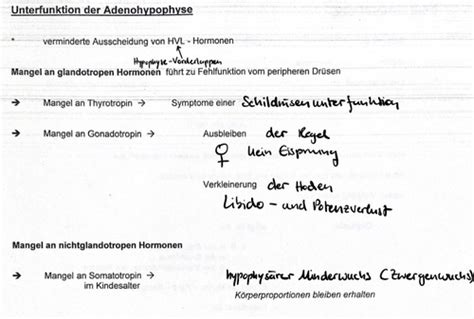 Unterfunktion der Adenohypophyse
* verminderte Ausscheidung von HVL - Hormonen
Hypophyse-Vorderlappen
Mangel an glandotropen Hormonen führt zu Fehlfunktion vom peripheren Drüsen
→ Mangel an Thyrotropin → Symptome einer Schilddrüsenunterfunktion
→ Mangel an Gonadotropin → Ausbleiben der Regel
♀ kein Eisprung
Verkleinerung der Hoden
Libido - und Potenzverlust
Mangel an nichtglandotropen Hormonen
→ Mangel an Somatotropin → hypophysärer Minderwuchs (Zwergenwuchs)
im Kindesalter
Körperproportionen bleiben erhalten